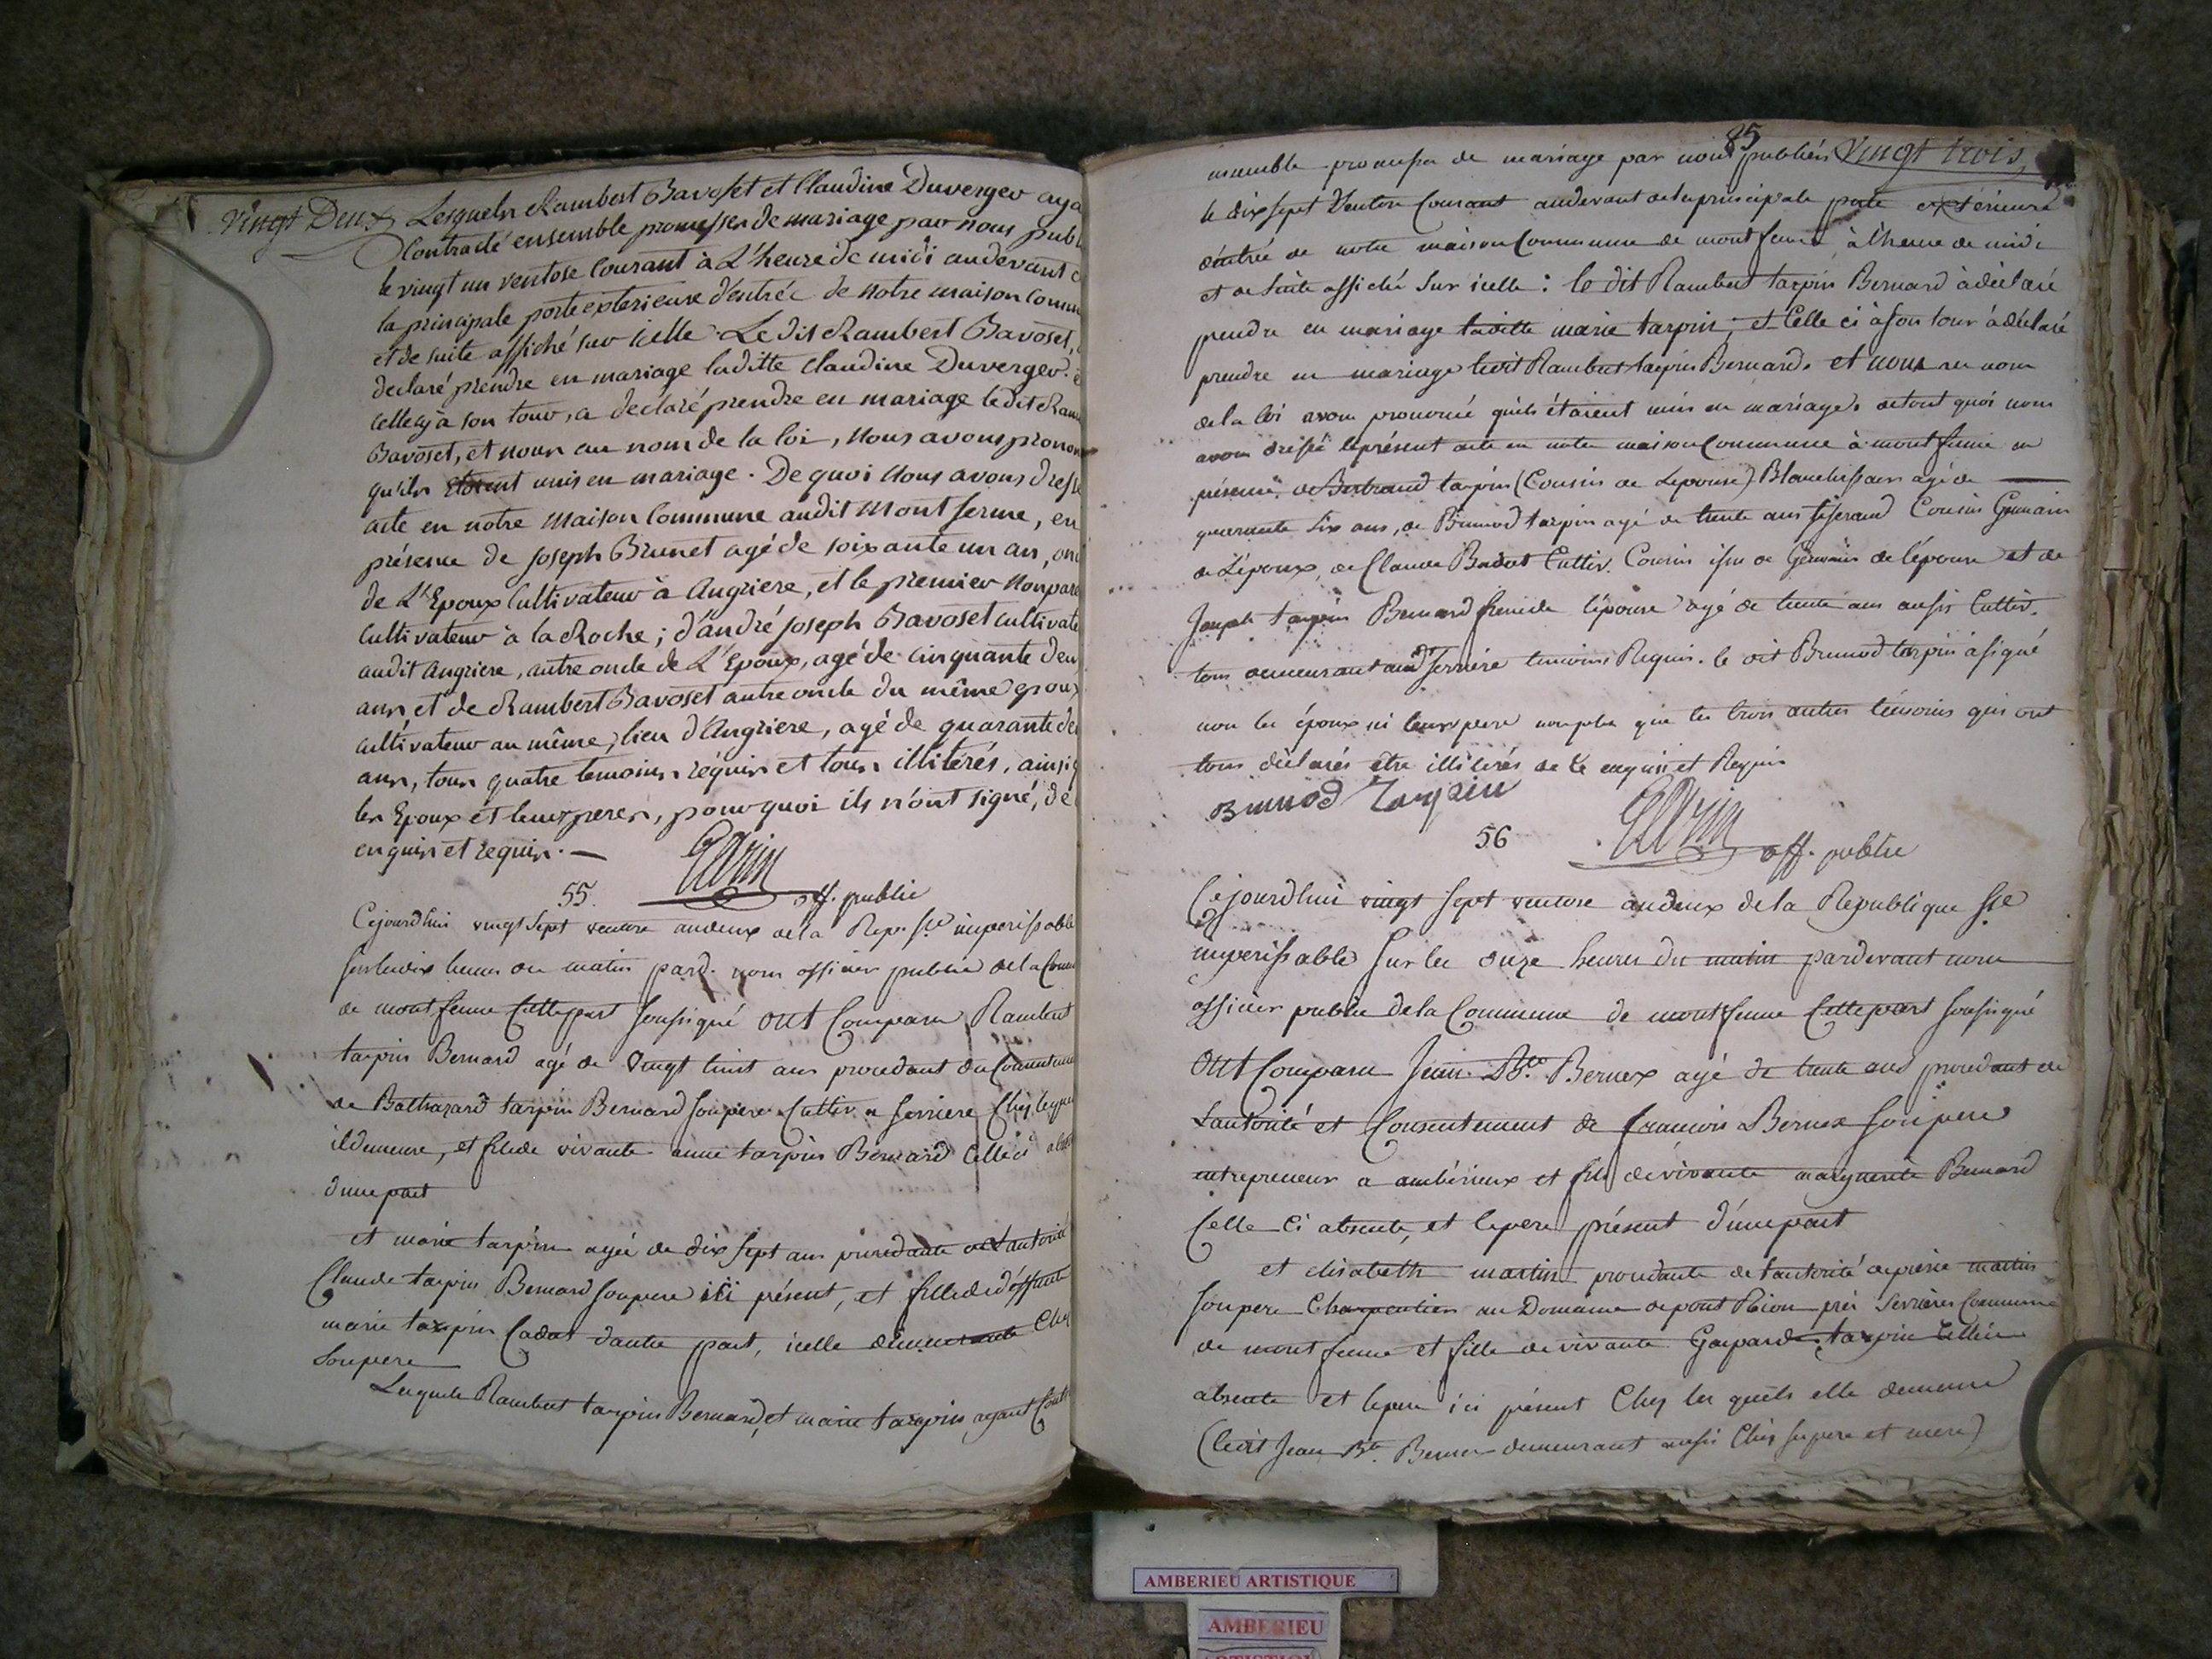 Vingt Deux
Lesqueln Rambert Bavoset et Claudine Duverger aya
Contracté ensemble promessen de mariage par nous publ
le vingt un ventose Courant à L'heure de midi au devant d
la principale porte exterieure d'entrée de notre maison Comm
et de suite affiché sur icelle. Le dit Rambert Bavoset,
declaré prendre en mariage laditte Claudine Duverger.
celle cy à son tour, a declaré prendre en mariage ledit Ram
Bavoset, et nous au nom de la loi, nous avons pronon
qu'iln étoient unis en mariage. De quoi nous avons dressé
acte en notre Maison Commune audit Montferme, en
présence de joseph Brunet agé de soixante un an, oncl
de L'Epoux Cultivateur à Angriere, et le premier nonpare
Cultivateur à la Roche; d'andré joseph Bavoset cultivate
audit angriere, autre oncle de L'Epoux, agé de cinquante deu
ann, et de Rambert Bavoset autre oncle du même epoux
cultivateur au même lieu d'Angriere, agé de quarante de
ann, toun quatre temoinn requin et toun illitérés, ainsi q
len Epoux et leurs peren, pourquoi ils n'ont signé, de
enquin et requin. —
55. off. public
Cejourdhui vingt sept ventose an deux de la Rep. fse imperissable
sur les dix heures du matin pard. nous officier public de la Comm
de montferme cette part soussigné ont Comparu Rambert
tarpin Bernard agé de vingt huit ans procedant du Consentem
de Balthazard tarpin Bernard son pere Cultiv. a serriere Chez lequel
il demeure, et fils de vivante anne tarpin Bernard Celle ci abs
d'une part
et marie tarpin agée de dix sept ans procedante de l'autorité
Claude tarpin Bernard son pere ici présent, et fille de deffunte
marie tarpin Cadat d'autre part, icelle demeurante Chez
son pere
Lesquels Rambert tarpin Bernard, et marie tarpin, ayant Cont
85
ensemble promesse de mariage par nous publiées Vingt trois,
le dix sept Ventose Courant au devant de la principale porte extérieure
d'entrée de notre maison Commune de montferme à l'heure de midi
et de suite affiché sur icelle: le dit Rambert tarpin Bernard à déclaré
prendre en mariage laditte marie tarpin, et Celle ci à son tour à déclaré
prendre en mariage ledit Rambert tarpin Bernard. et nous au nom
de la loi avons prononcé qu'ils étaient unis en mariage. de tout quoi nous
avons dressé le présent acte en notre maison Commune à montferme en
présence de Bertrand tarpin (Cousin de Lepouse) agé de —
quarante six ans, de Brunod tarpin agé de trente ans tisserand Cousin Germain
de L'époux, de Claude Cultiv. Cousin issu de Germain de l'épouse et de
Joseph tarpin Bernard frere de l'épouse agé de trente ans aussi Cultiv.
tous demeurant aud. serriere temoins Requis. le dit Brunod tarpin à signé
non les époux ni leurs pere non plus que les trois autres témoins qui ont
tous déclarés être illitérés de ce enquis et Requis
Brunod Tarpin
56 off. public
Cejourdhui vingt sept ventose an deux de la Republique fse
imperissable sur les onze heures du matin pardevant nous
officier public de la Commune de montferme Cette part soussigné
Ont Comparu Jean Bte Bernex agé de trente ans procedant de
L'autorité et Consentement de francois Bernex son pere
entrepreneur a ambérieux et fils de vivante marguerite Bernard
Celle Ci absente, et le pere présent d'une part
et elisabeth martin procedante de l'autorité de pierre martin
son pere Charpentier au Domaine de pont Rion prés Serrieres Commune
de montferme et fille de vivante Gasparde tarpin Celle ci
absente et le pere ici présent Chez les quels elle demeure
(ledit Jean Bte Bernex demeurant aussi Chez ses pere et mere)
AMBERIEU ARTISTIQUE
AMBERIEU
ARTISTIQUE